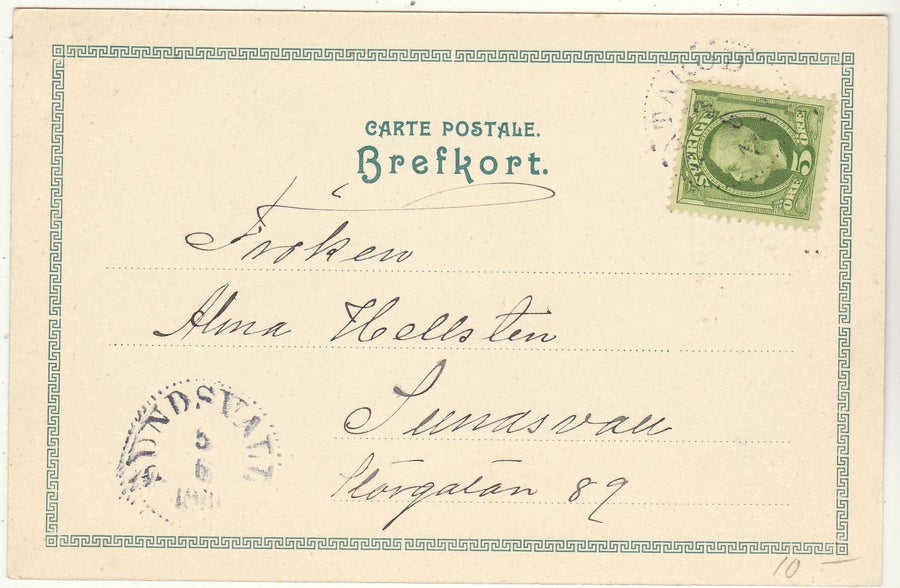 CARTE POSTALE.
Brefkort.
SVERIGE
5
ÖRE ÖRE
Fröken
Alma Hellsten
Sundsvall
Storgatan 89
SUNDSVALL
5
10 —